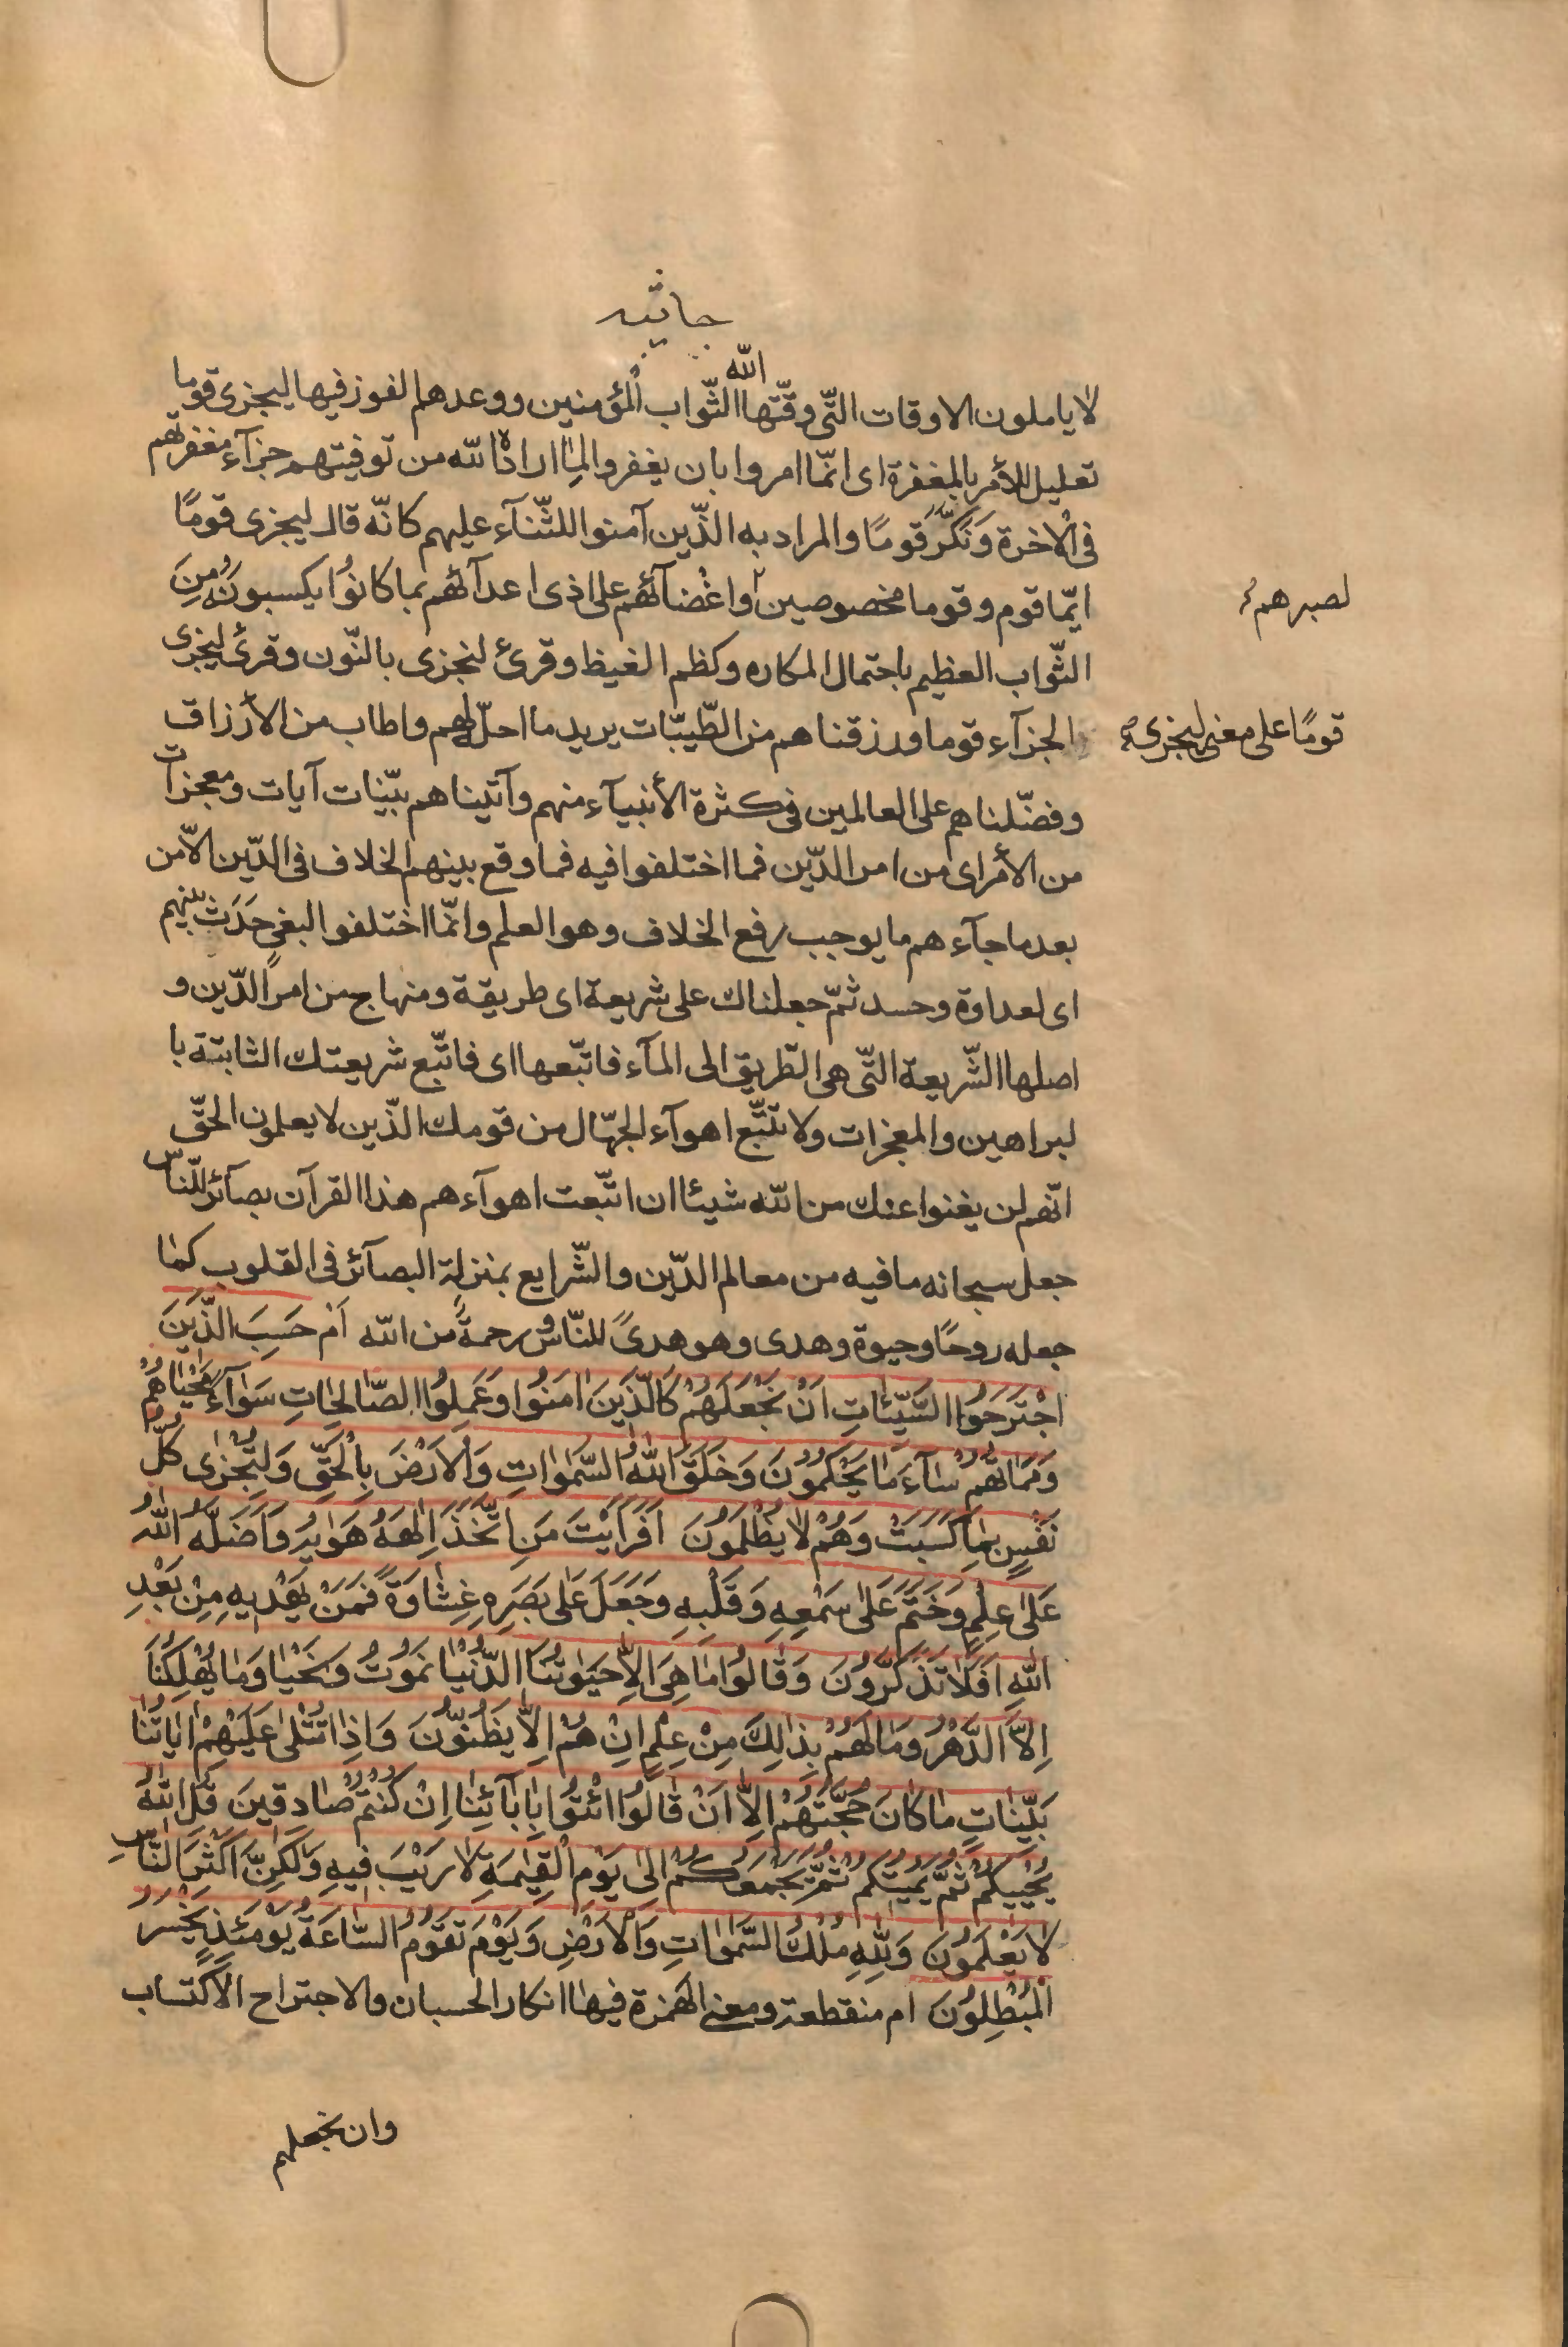 جاثیه
الله
لا یاملون الاوقات التّی وقّتها الثّواب المؤمنین ووعدهم الفوز فیها لیجزی قوما
تعلیل للأمر بالمغفرة ای انّما امروا بان یغفروا لما اراده الله من توفیتهم جزآء مغفرتهم
فی الآخرة وَنَكَّرَ قومًا والمراد به الذّین آمنوا للثّنآء علیهم كانّه قال لیجزی قومًا
ایّما قوم وقوما مخصوصین واغضآئهم علی اذی اعدآئهم بما كانُوا یكسبونَهُ مِنَ
لصبرهم
الثّواب العظیم باحتمال المكاره وكظم الغیظ وقرئ لنجزی بالنّون وقرئ لیجزی
الجزآء قوما ورزقناهم من الطّیبّات یرید ما احلّ لهم واطاب من الأرزاق
قومًا علی معنی لیجزی
وفضّلناهم علی العالمین فی كثرة الأنبیآء منهم وآتیناهم بیّنات آیات ومعجزات
من الأمر ای من امر الدّین فما اختلفوا فیه فما وقع بینهم الخلاف فی الدّین الاّ من
بعد ما جآءهم ما یوجب رفع الخلاف وهو العلم وانّما اختلفوا لبغیٍ حَدَثَ بینهم
ای لعداوة وحسد ثمّ جعلناك علی شریعة ای طریقة ومنهاج من امر الدّین و
اصلها الشّریعة التّی هی الطّریق الی المآء فاتبّعها ای فاتّبع شریعتك الثابتة با
لبراهین والمعجزات ولا تتّبع اهوآء الجهّال من قومك الذّین لا یعلمون الحقّ
انّهم لن یغنوا عنك من الله شیئا ان اتّبعت اهوآءهم هذا القرآن بصآئر للنّاس
جعل سبحانه ما فیه من معالم الدّین والشّرایع بمنزلة البصآئر فی القلوب كما
جعله روحًا وحیوة وهدی وهو هدیً للنّاس ورحمةً من الله اَمْ حَسِبَ الَّذینَ
اجْتَرَحُوا السَّیِّئاتِ اَنْ نَجْعَلَهُمْ كَالَّذینَ اٰمَنُوا وَعَمِلُوا الصّالِحاتِ سَوآءً مَحْیاهُمْ
وَمَماتُهُمْ سآءَ مٰا یَحْكُمُونَ وَخَلَقَ اللهُ السَّمٰوٰاتِ وَالْاَرْضَ بِالْحَقِّ وَلِتُجْزیٰ كُلُّ
نَفْسٍ بِمٰا كَسَبَتْ وَهُمْ لا یُظْلَمُونَ اَفَرَاَیْتَ مَنِ اتَّخَذَ اِلٰهَهُ هَوٰیهُ وَاَضَلَّهُ اللهُ
عَلیٰ عِلْمٍ وَخَتَمَ عَلیٰ سَمْعِهِ وَقَلْبِهِ وَجَعَلَ عَلیٰ بَصَرِهِ غِشٰاوَةً فَمَنْ یَهْدیهِ مِنْ بَعْدِ
اللهِ اَفَلا تَذَكَّرُونَ وَقٰالُوا مٰا هِیَ اِلاّ حَیوٰتُنَا الدُّنْیٰا نَمُوتُ وَنَحْیٰا وَمٰا یُهْلِكُنٰا
اِلاَّ الدَّهْرُ وَمٰا لَهُمْ بِذٰلِكَ مِنْ عِلْمٍ اِنْ هُمْ اِلاّ یَظُنُّونَ وَاِذٰا تُتْلیٰ عَلَیْهِمْ اٰیاتُنٰا
بَیِّنٰاتٍ مٰا كٰانَ حُجَّتَهُمْ اِلاّ اَنْ قٰالُوا ائْتُوا بِاٰبٰآئِنٰا اِنْ كُنْتُمْ صٰادِقینَ قُلِ اللهُ
یُحْییكُمْ ثُمَّ یُمیتُكُمْ ثُمَّ یَجْمَعُكُمْ اِلیٰ یَوْمِ الْقِیٰمَةِ لا رَیْبَ فیهِ وَلٰكِنَّ اَكْثَرَ النّاسِ
لا یَعْلَمُونَ وَلِلّٰهِ مُلْكُ السَّمٰوٰاتِ وَالْاَرْضِ وَیَوْمَ تَقُومُ السّٰاعَةُ یَوْمَئِذٍ یَخْسَرُ
الْمُبْطِلُونَ ام منقطعة ومعنی الهمزة فیها انكار الحسبان والاجتراح الاكتساب
وان نجعلهم